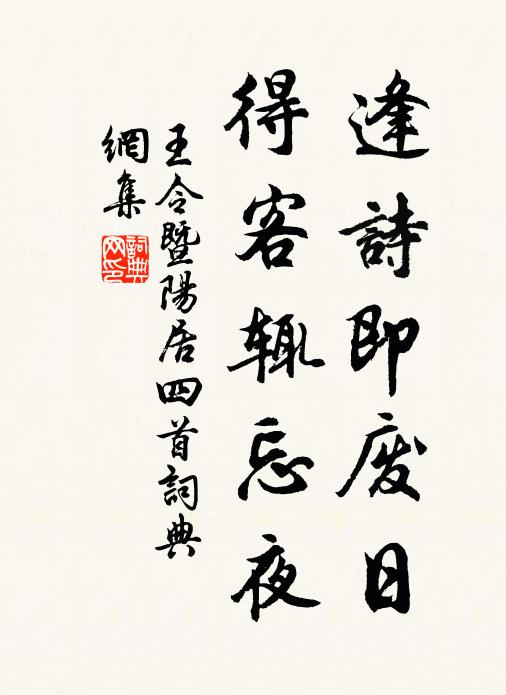 逢詩即废日
得客辄忘夜
王令暨陽居四首詞典
網集
詞典
网印